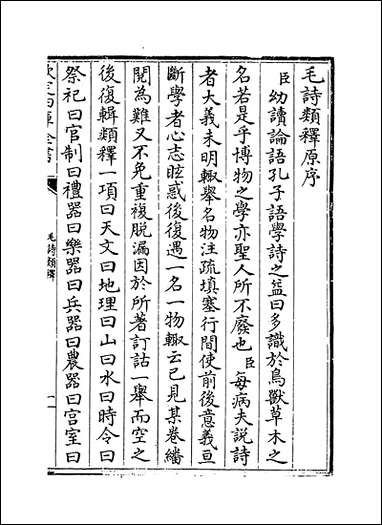 毛詩類釋原序
臣幼讀論語孔子語學詩之益曰多識於鳥獸草木之
名若是乎博物之學亦聖人所不廢也臣每病夫說詩
者大義未明輒舉名物注疏填塞行間使前後意義亘
斷學者心志眩惑後復遇一名一物輒云已見某卷繙
閱為難又不免重複脫漏因於所著訂詁一舉而空之
後復輯類釋一項曰天文曰地理曰山曰水曰時令曰
祭祀曰官制曰禮器曰樂器曰兵器曰農器曰宮室曰
欽定四庫全書
毛詩類釋
一